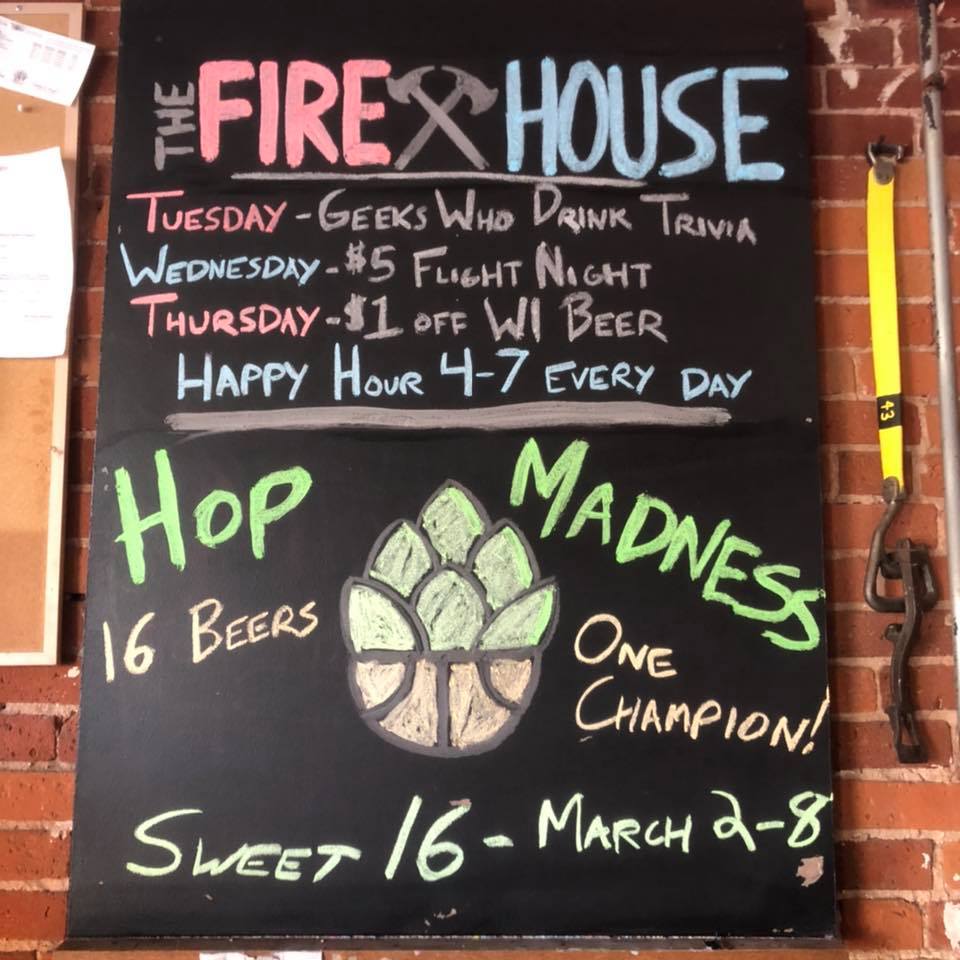 THE FIRE HOUSE
TUESDAY - GEEKS WHO DRINK TRIVIA
WEDNESDAY - $5 FLIGHT NIGHT
THURSDAY - $1 OFF WI BEER
HAPPY HOUR 4-7 EVERY DAY
HOP MADNESS
16 BEERS
ONE
CHAMPION!
SWEET 16 - MARCH 2-8
43